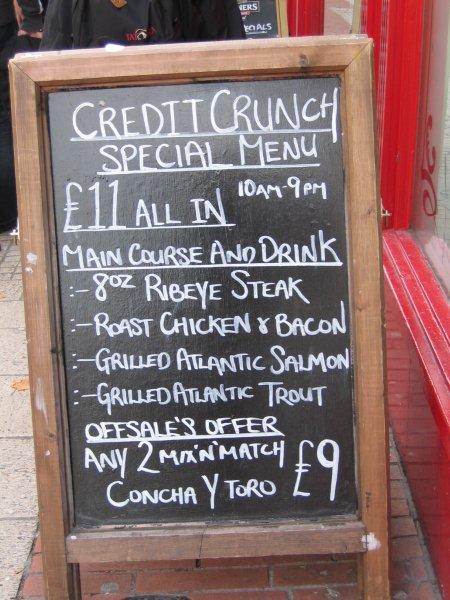 NERS
ECIALS
CREDIT CRUNCH
SPECIAL MENU
£11 ALL IN 10AM-9PM
MAIN COURSE AND DRINK
:- 8OZ RIBEYE STEAK
:- ROAST CHICKEN & BACON
:- GRILLED ATLANTIC SALMON
:- GRILLED ATLANTIC TROUT
OFFSALE'S OFFER
ANY 2 MIX'N'MATCH £9
CONCHA Y TORO